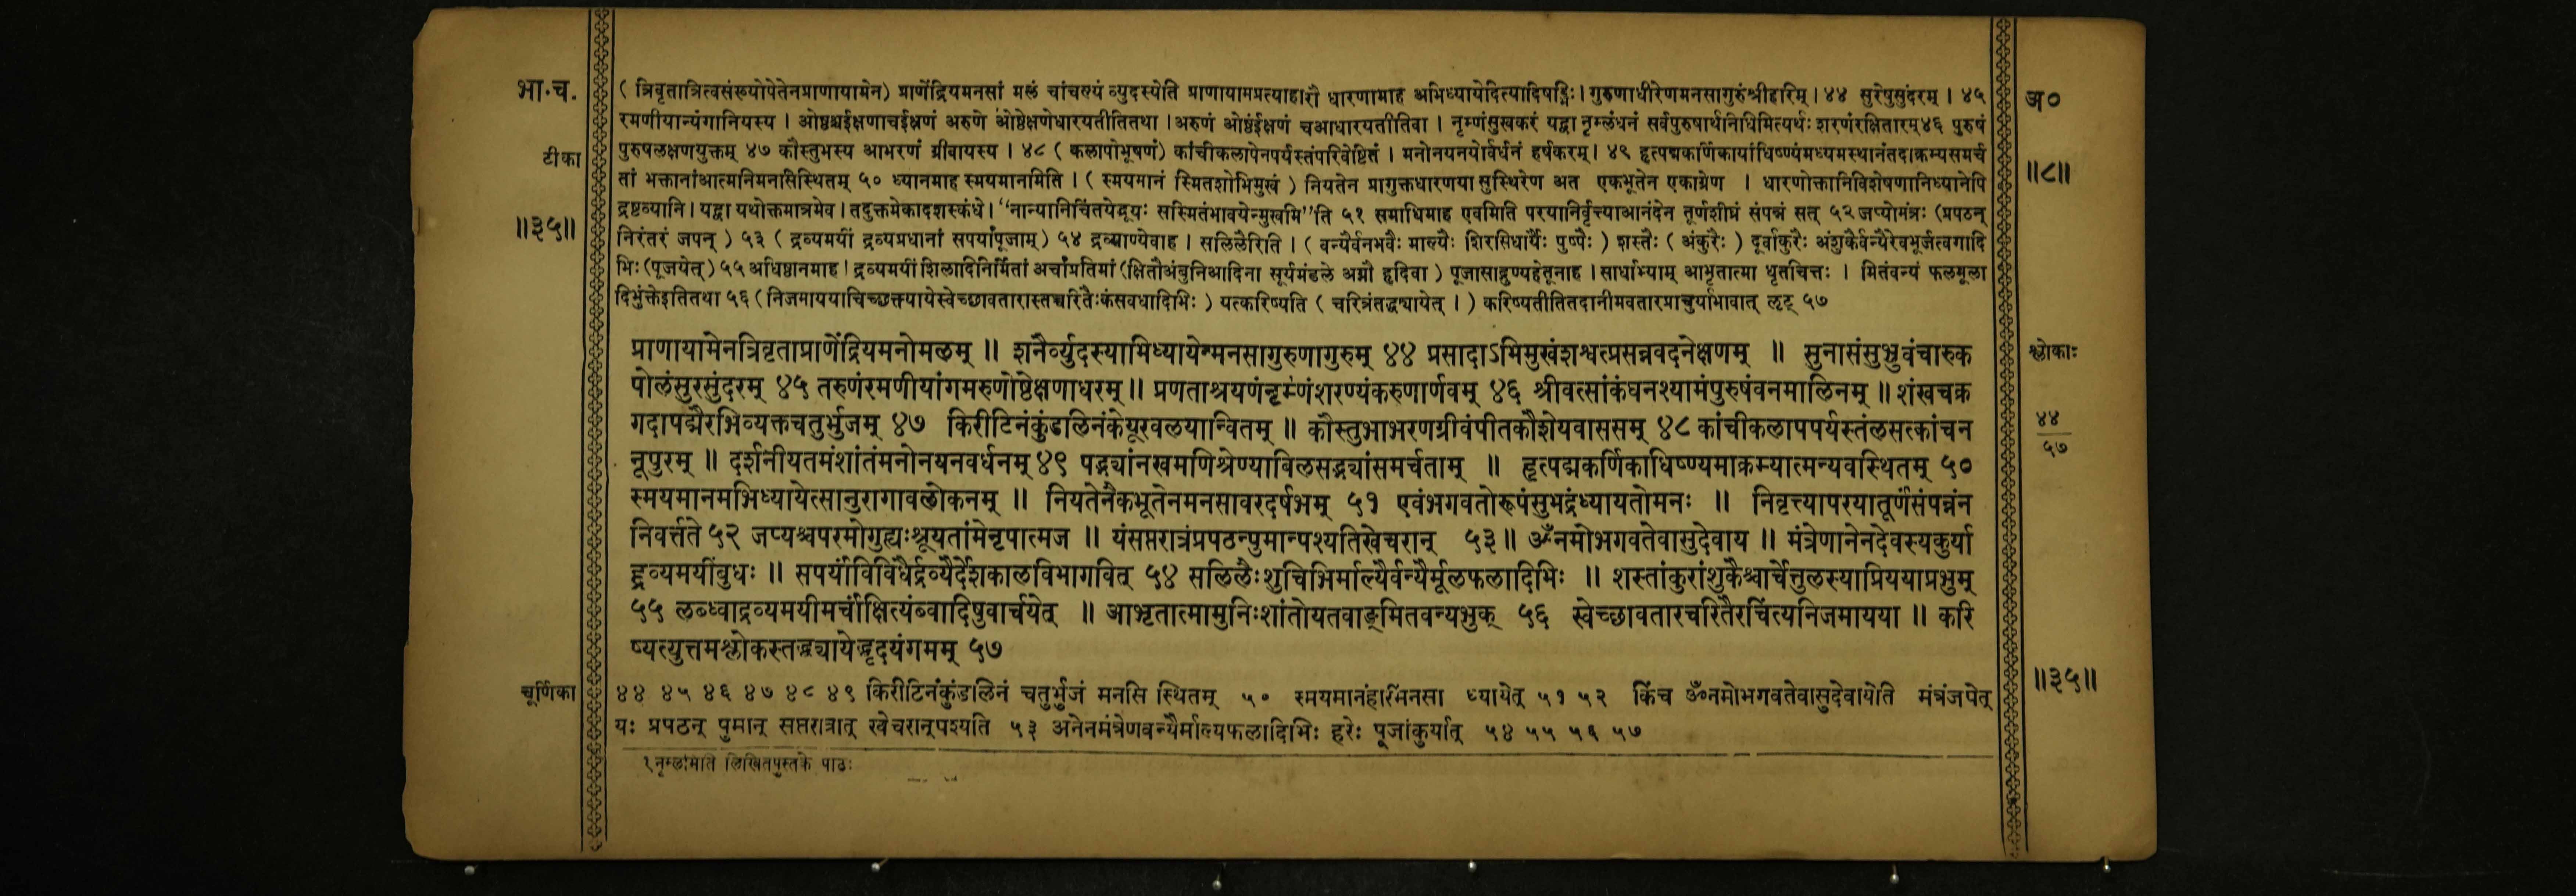 भा॰च.
( त्रिवृतात्रित्वसंख्योपेतेनप्राणायामेन) प्राणेंद्रियमनसां मलं चांचल्यं व्युदस्येति प्राणायामप्रत्याहारौ धारणामाह अभिध्यायेदित्यादिषड्भिः। गुरुणाधीरेणमनसागुरुंश्रीहरिम्। ४४ सुरेषुसुंदरम् । ४५
अ०
रमणीयान्यंगानियस्य । ओष्ठश्चईक्षणाचईक्षणं अरुणे ओष्ठेक्षणेधारयतीतितथा।अरुणं ओष्ठंईक्षणं चआधारयतीतिवा । नृम्णंसुखकरं यद्वा नृम्लंधनं सर्वपुरुषार्थनिधिमित्यर्थः शरणंरक्षितारम्४६ पुरुषं
टीका
पुरुषलक्षणयुक्तम् ४७ कौस्तुभस्य आभरणं ग्रीवायस्य । ४८ ( कलापोभूषणं) कांचीकलापेनपर्यस्तंपरिवेष्टितं । मनोनयनयोर्वर्धनं हर्षकरम्। ४९ हृत्पद्मकर्णिकायाधिष्ण्यंमध्यमस्थानंतदाक्रम्यसमर्च
॥८॥
तां भक्तानांआत्मनिमनसिस्थितम् ५० ध्यानमाह स्मयमानमिति । ( स्मयमानं स्मितशोभिमुखं ) नियतेन प्रागुक्तधारणया सुस्थिरेण अत एकभूतेन एकाग्रेण । धारणोक्तानिविशेषणानिध्यानेपि
द्रष्टव्यानि। यद्वा यथोक्तमात्रमेव। तदुक्तमेकादशस्कंधे। “नान्यानिचिंतयेद्भूयः सस्मितंभावयेन्मुखमि”ति ५१ समाधिमाह एवमिति परयानिर्वृत्त्याआनंदेन तूर्णशीघ्रं संपन्नं सत् ५२ जप्योमंत्रः (प्रपठन्
॥३५॥
निरंतरं जपन् ) ५३ ( द्रव्यमयीं द्रव्यप्रधानां सपर्यांपूजाम्) ५४ द्रव्याण्येवाह । सलिलैरिति । ( वन्यैर्वनभवैः माल्यैः शिरसिधार्यैः पुष्पैः ) शस्तैः ( अंकुरैः ) दूर्वांकुरैः अंशुकैर्वन्यैरेवभूर्जत्वगादि
भिः (पूजयेत्) ५५ अधिष्ठानमाह। द्रव्यमयीं शिलादिनिर्मितां अर्चांप्रतिमां (क्षितौअंबुनिआदिना सूर्यमंडले अग्नौ हृदिवा ) पूजासाद्गुण्यहेतूनाह । सार्धाभ्याम् आभृतात्मा धृतचित्तः । मितंवन्यं फलमूला
दिभुंक्तेइतितथा ५६ ( निजमाययाचिच्छक्त्यायेस्वेच्छावतारास्तच्चरितैःकंसवधादिभिः ) यत्करिष्यति ( चरित्रंतद्ध्यायेत् । ) करिष्यतीतितदानीमवतारप्राचुर्याभावात् ऌट् ५७
प्राणायामेनत्रिवृताप्राणेंद्रियमनोमलम् ॥ शनैर्व्युदस्याभिध्यायेन्मनसागुरुणागुरुम् ४४ प्रसादाऽभिमुखंशश्वत्प्रसन्नवदनेक्षणम् ॥ सुनासंसुभ्रुवंचारुक
श्लोकाः
पोलंसुरसुंदरम् ४५ तरुणंरमणीयांगमरुणोष्ठेक्षणाधरम्॥ प्रणताश्रयणंनृम्णंशरण्यंकरुणार्णवम् ४६ श्रीवत्सांकंघनश्यामंपुरुषंवनमालिनम् ॥ शंखचक्र
गदापद्मैरभिव्यक्तचतुर्भुजम् ४७ किरीटिनंकुंडलिनंकेयूरवलयान्वितम् ॥ कौस्तुभाभरणग्रीवंपीतकौशेयवाससम् ४८ कांचीकलापपर्यस्तंलसत्कांचन
४४
५७
नूपुरम् ॥ दर्शनीयतमंशांतंमनोनयनवर्धनम् ४९ पद्भ्यांनखमणिश्रेण्याविलसद्भ्यांसमर्चताम् ॥ हृत्पद्मकर्णिकाधिष्ण्यमाक्रम्यात्मन्यवस्थितम् ५०
स्मयमानमभिध्यायेत्सानुरागावलोकनम् ॥ नियतेनैकभूतेनमनसावरदर्षभम् ५१ एवंभगवतोरूपंसुभद्रंध्यायतोमनः ॥ निवृत्त्यापरयातूर्णंसंपन्नंन
निवर्त्तते ५२ जप्यश्चपरमोगुह्यःश्रूयतांमेनृपात्मज ॥ यंसप्तरात्रंप्रपठन्पुमान्पश्यतिखेचरान् ५३॥ ॐनमोभगवतेवासुदेवाय ॥ मंत्रेणानेनदेवस्यकुर्या
द्द्रव्यमयींबुधः ॥ सपर्यांविविधैर्द्रव्यैर्देशकालविभागवित् ५४ सलिलैःशुचिभिर्माल्यैर्वन्यैर्मूलफलादिभिः ॥ शस्तांकुरांशुकैश्चार्चेत्तुलस्याप्रिययाप्रभुम्
५५ लब्ध्वाद्रव्यमयीमर्चांक्षित्यंब्वादिषुवार्चयेत् ॥ आभृतात्मामुनिःशांतोयतवाङ्मितवन्यभुक् ५६ स्वेच्छावतारचरितैरचिंत्यनिजमायया ॥ करि
ष्यत्युत्तमश्लोकस्तद्ध्यायेद्धृदयंगमम् ५७
चूर्णिका
४४ ४५ ४६ ४७ ४८ ४९ किरीटिनंकुंडलिनं चतुर्भुजं मनसि स्थितम् ५० स्मयमानंहरिंमनसा ध्यायेत् ५१ ५२ किंच ॐनमोभगवतेवासुदेवायेति मंत्रंजपेत्
॥३५॥
यः प्रपठन् पुमान् सप्तरात्रात् खेचरान्पश्यति ५३ अनेनमंत्रेणवन्यैर्माल्यफलादिभिः हरेः पूजांकुर्यात् ५४ ५५ ५६ ५७
१ नृम्लमिति लिखितपुस्तके पाठः